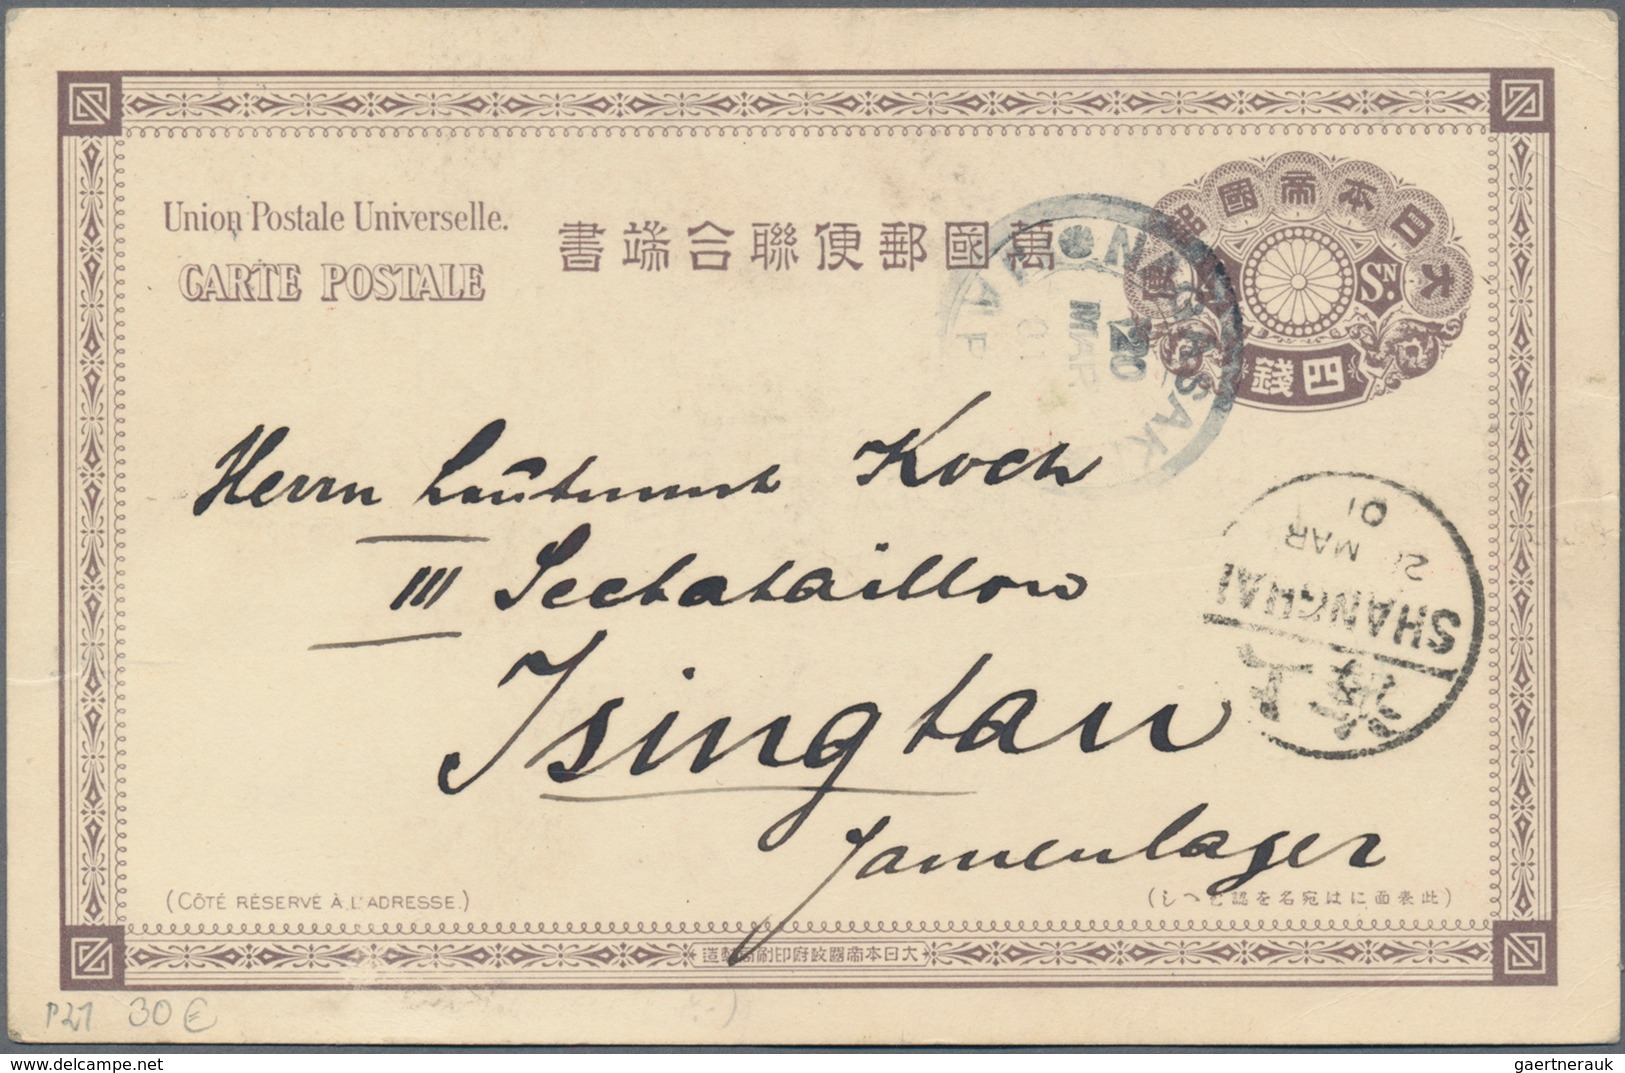 Union Postale Universelle.
CARTE POSTALE
書端合聯便郵國萬
大日本帝國郵
Sn.
四錢
NAGASAKI
20
MAR
01
Herrn Leutnant Koch
III Seebataillon
Tsingtau
Jamenlager
01
MAR
SHANGHAI
上海
(CÔTÉ RÉSERVÉ À L'ADRESSE.)
(此表面には宛名を認むへし)
大日本帝國政府印刷局製造
P21 30 €
gaertnerauk
delcampe.net